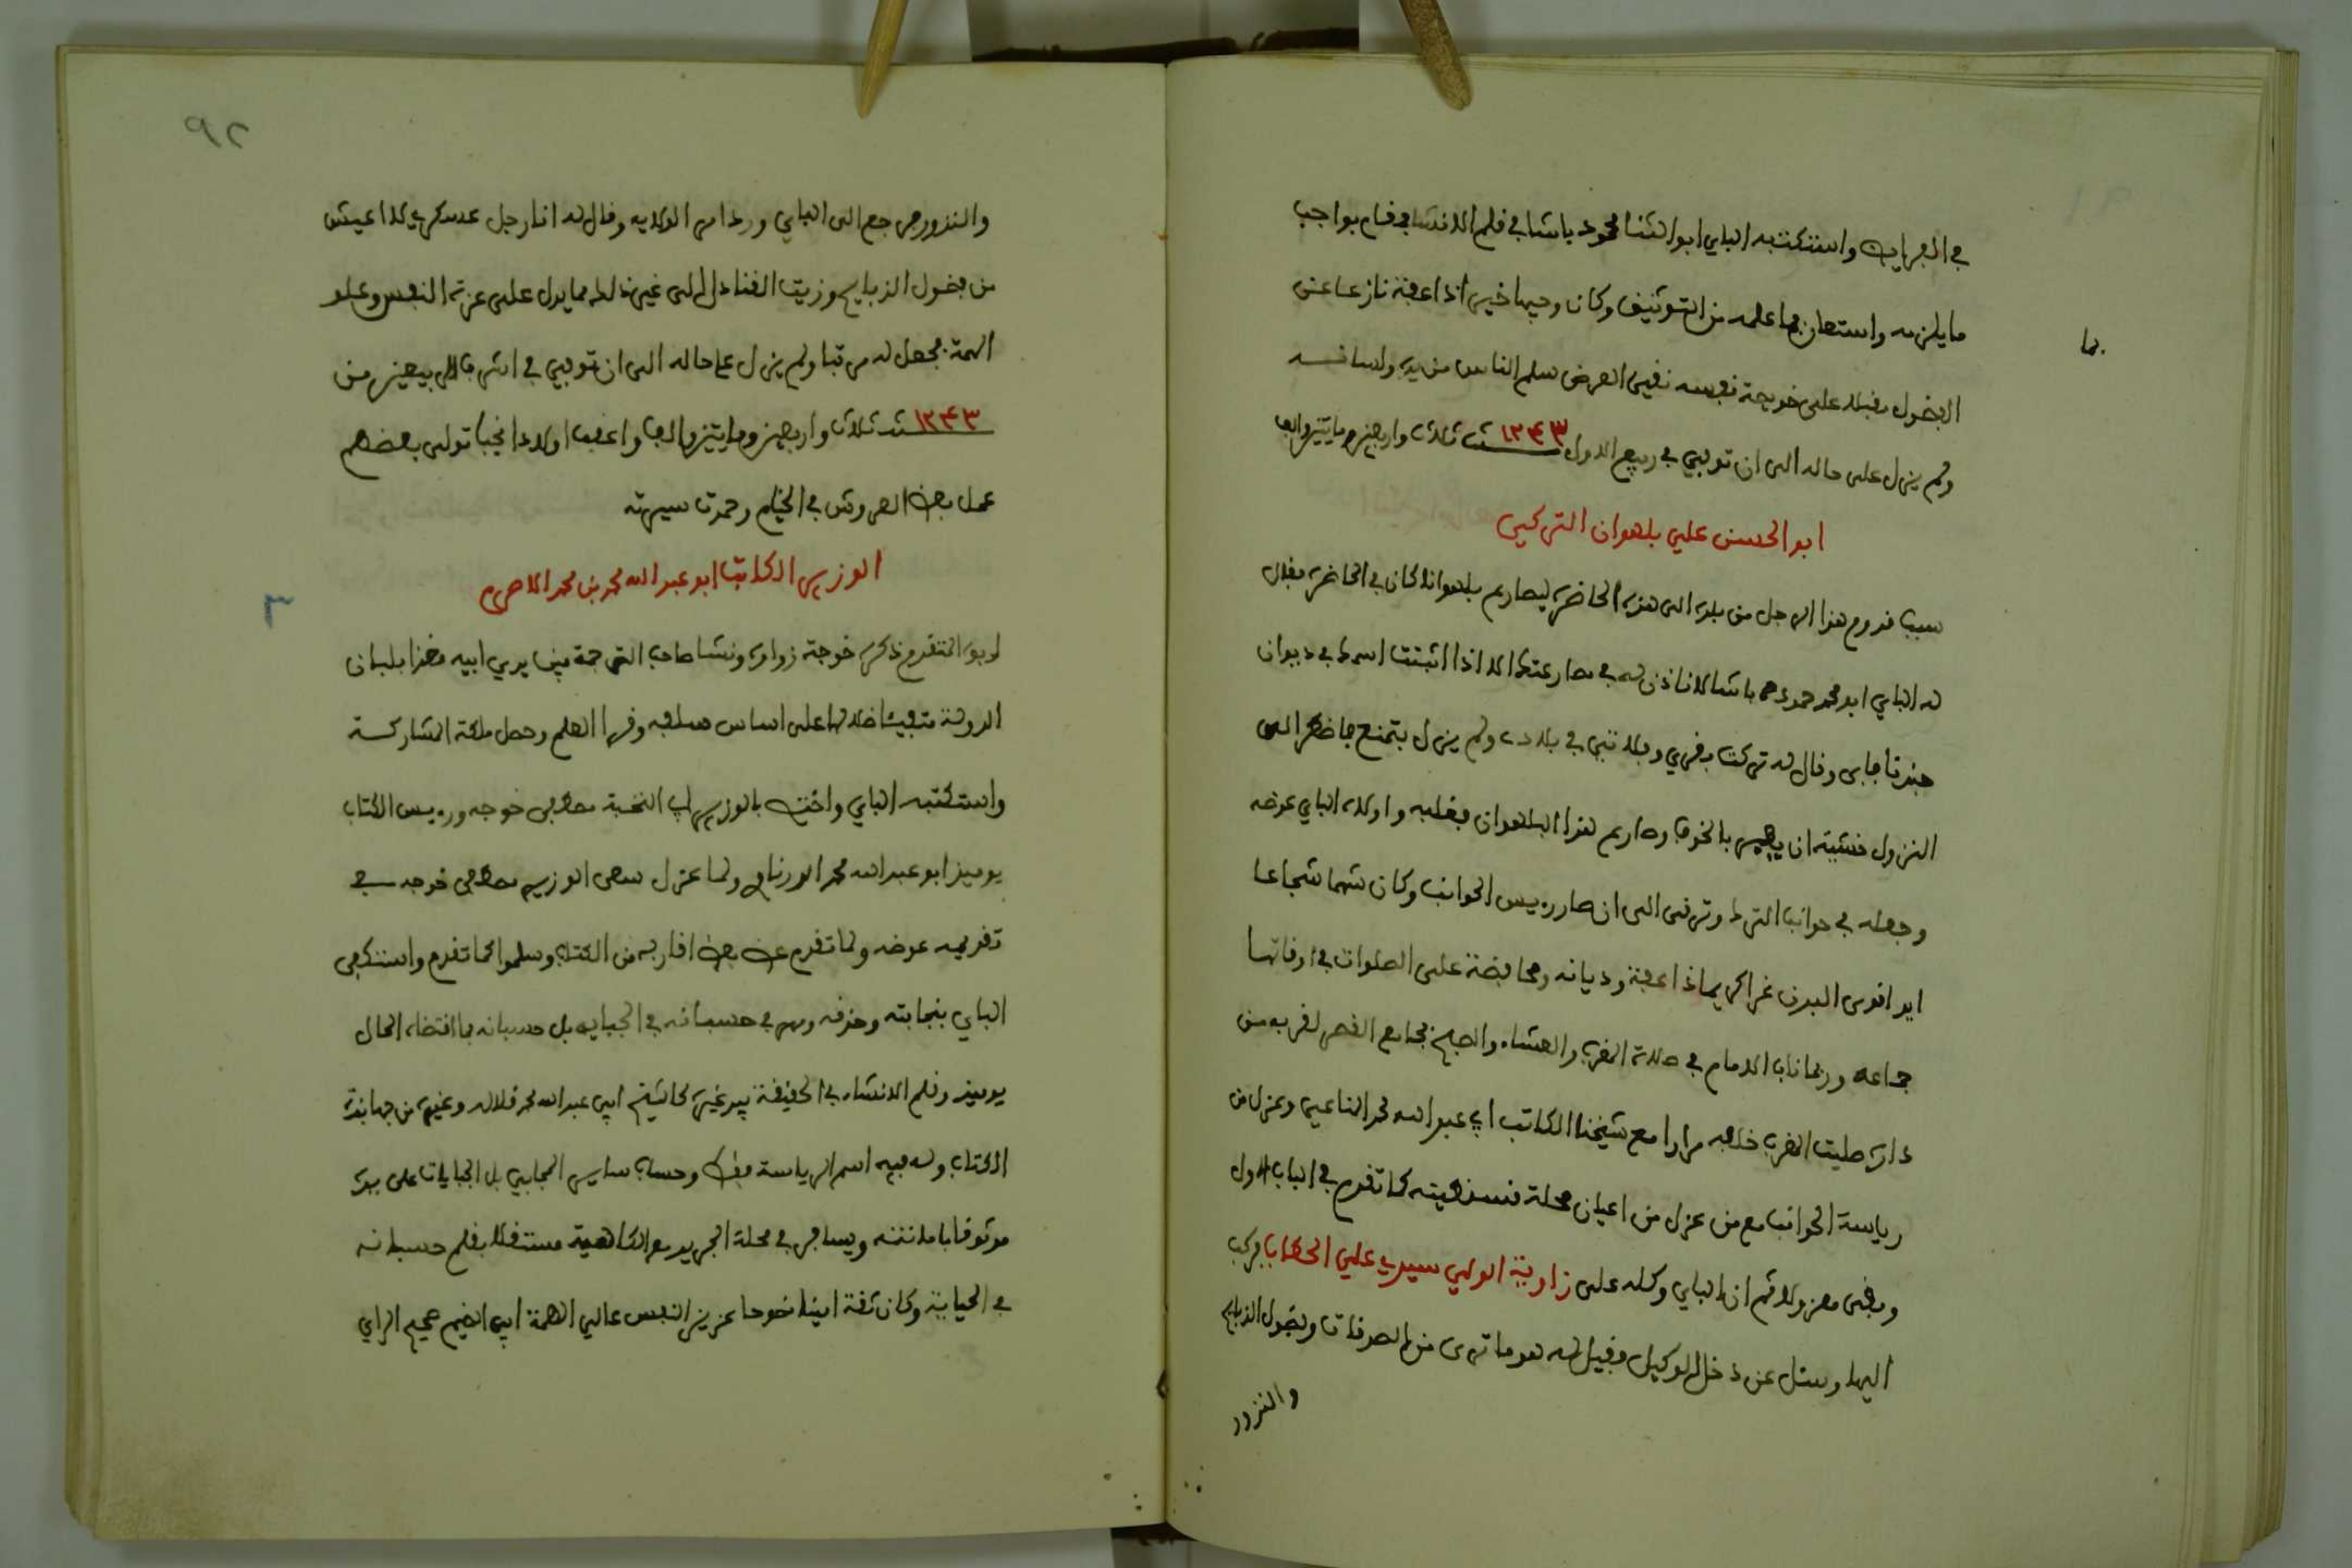 في الجرايات واستكتبه الباي ابو الثنا محمود باشا في قلم الانشا فقام بواجب
ما يلزمه واستعان بما علمه من التوثيق وكان وجيها خيرا ذا عفة نازعا عن
بما
الفضول مقبلا على خويصة نفسه نقي العرض سلم الناس من يده ولسانه
ولم يزل على حاله الى ان توفي في ربيع الاول ١٢٤٣ سنة ثلاث واربعين ومايتين والف
ابو الحسن علي بلهوان التركي
سبب قدوم هذا الرجل من بلده الى هذه الحاضرة ليصارع بلهوانا كان في الحاضرة فقال
له الباي ابو محمد حمودة باشا لا ناذن لك في مصارعته الا اذا اثبتت اسمك في ديوان
جندنا فابى وقال له تركت بقري وفلاحتي في بلادي ولم يزل يتمنع فاضطر الى
النزول خشية ان يعير بالخوف وصارع هذا البلهوان فغلبه واولاه الباي عوضه
وجعله في حوانب الترك وترقى الى ان صار رييس الحوانب وكان شهما شجاعا
ابيا قوي البدن غرا كريما ذا عفة وديانة ومحافظة على الصلوات في اوقاتها
جماعة وربما ناب الامام في صلاة المغرب والعشاء والصبح بجامع القصر لقربه من
داره صليت المغرب خلفه مرارا مع شيخنا الكاتب ابي عبد الله محمد المناعي وعزل من
رياسة الحوانب مع من عزل من اعيان محلة قسنطينة كما تقدم في الباب الاول
وبقي معزولا ثم ان الباي وكله على زاوية الولي سيدي علي الحطاب فركب
اليها وسئل عن دخل الوكيل فقيل له هو ما ترى من الصدقات وفضول الذبايح
والنزور
٩٢
والنزور فرجع الى الباي ورد امر الولاية وقال له انا رجل عسكري لا اعيش
من فضول الذبايح وزيت القناديل الى غير ذلك مما يدل على عزة النفس وعلو
الهمة فجعل له مرتبا ولم يزل على حاله الى ان توفي في اشرف الربيعين من
١٢٤٣ سنة ثلاث واربعين ومايتين والف واعقب اولادا نجبا تولى بعضهم
عمل بعض العروش في الخيام وحمدت سيرته
الوزير الكاتب ابو عبد الله محمد بن محمد الاصرم
٣
لابوه المتقدم ذكره خوجة زواوة ونشا صاحب الترجمة بين يدي ابيه مغذا بلبان
الدولة متفيئا ظلالها على اساس سلفه وقرا العلم وحصل ملكة المشاركة
واستكتبه الباي واختص بالوزير ابي النخبة مصطفى خوجه ورييس الكتاب
يوميذ ابو عبد الله محمد الورتاني ولما عزل سعى الوزير مصطفى خوجه في
تقديمه عوضه ولما تقدم عن بعض اقاربه من الكتاب وسلموا كما تقدم واستكفى
الباي بنجابته وحذقه ومهر في حسبانه في الجباية بل حسبانه بما اقتضاه الحال
يوميذ وقلم الانشاء في الحقيقة بيد غيره كالشيخ ابي عبد الله محمد قلاله وغيره من جهابذة
الكتاب وله فيه اسم الرياسة فقط وحساب ساير المجابي بل الجبايات على يده
موثوقا بامانته ويسافر في محلة الجريد مع الكاهية مستقلا بقلم حسبانه
في الجباية وكان ثقة امينا نصوحا عزيز النفس عالي الهمة ابي الضيم صحيح الراي